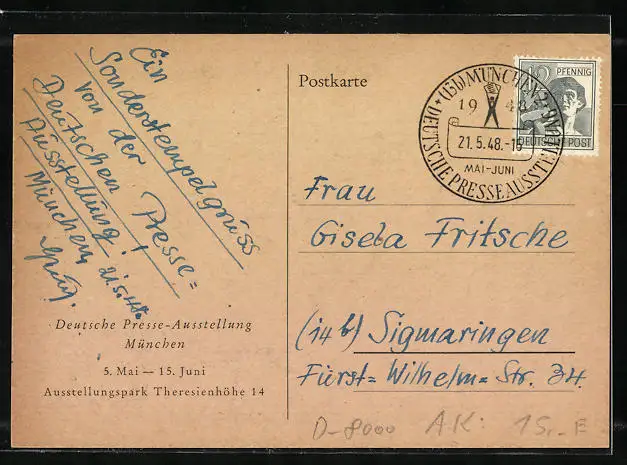 Ein
Sonderstempelgruss
von der
Deutschen Presse=
Ausstellung!
München, 21.5.48.
Deutsche Presse-Ausstellung
München
5. Mai — 15. Juni
Ausstellungspark Theresienhöhe 14
Postkarte
(13b) MÜNCHEN 2
DEUTSCHE PRESSEAUSSTELLUNG
19 48
21.5.48.-16
MAI-JUNI
12 PFENNIG
DEUTSCHE POST
Frau
Gisela Fritsche
(14b) Sigmaringen
Fürst= Wilhelm= Str. 34.
D-8000 AK: 15,-